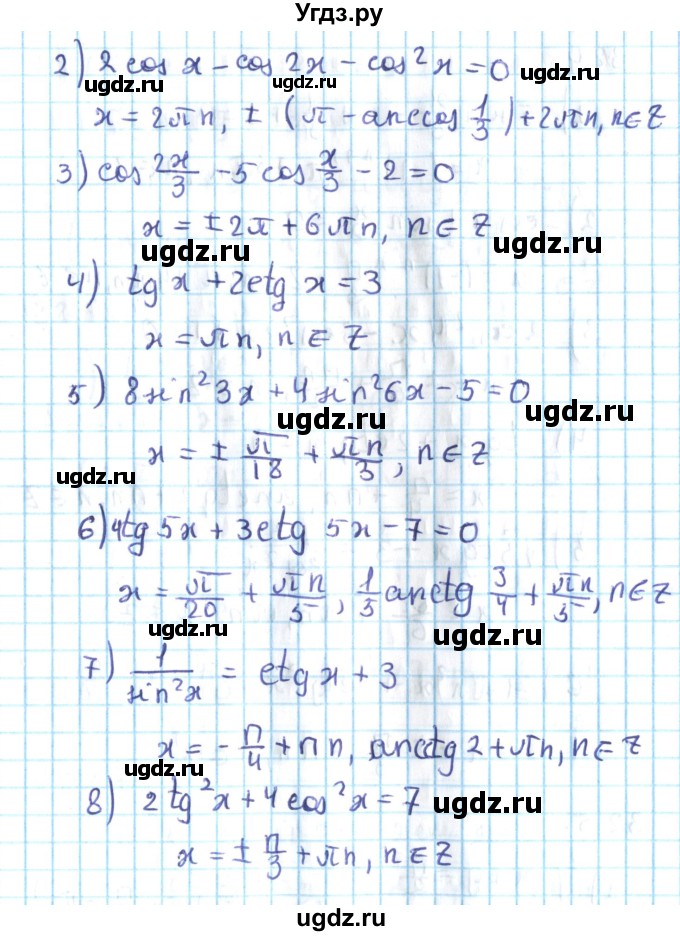 Угдз.ру
2) 2 cos x − cos 2x − cos²x = 0
ugdz.ru ugdz.ru ugdz.ru
x = 2πn, ± (π − arccos 1/3) + 2πn, n∈Z
3) cos 2x/3 − 5 cos x/3 − 2 = 0
x = ±2π + 6πn, n∈Z
ugdz.ru ugdz.ru
4) tg x + 2ctg x = 3
x = πn, n∈Z
5) 8sin²3x + 4sin²6x − 5 = 0
ugdz.ru
x = ± π/18 + πn/3, n∈Z
ugdz.ru
6) 4tg 5x + 3ctg 5x − 7 = 0
x = π/20 + πn/5, 1/5 arctg 3/4 + πn/5, n∈Z
ugdz.ru ugdz.ru
7) 1/sin²x = ctg x + 3
x = − π/4 + πn, arcctg 2 + πn, n∈Z
ugdz.ru
8) 2tg²x + 4cos²x = 7 ugdz.ru
x = ± π/3 + πn, n∈Z
ugdz.ru